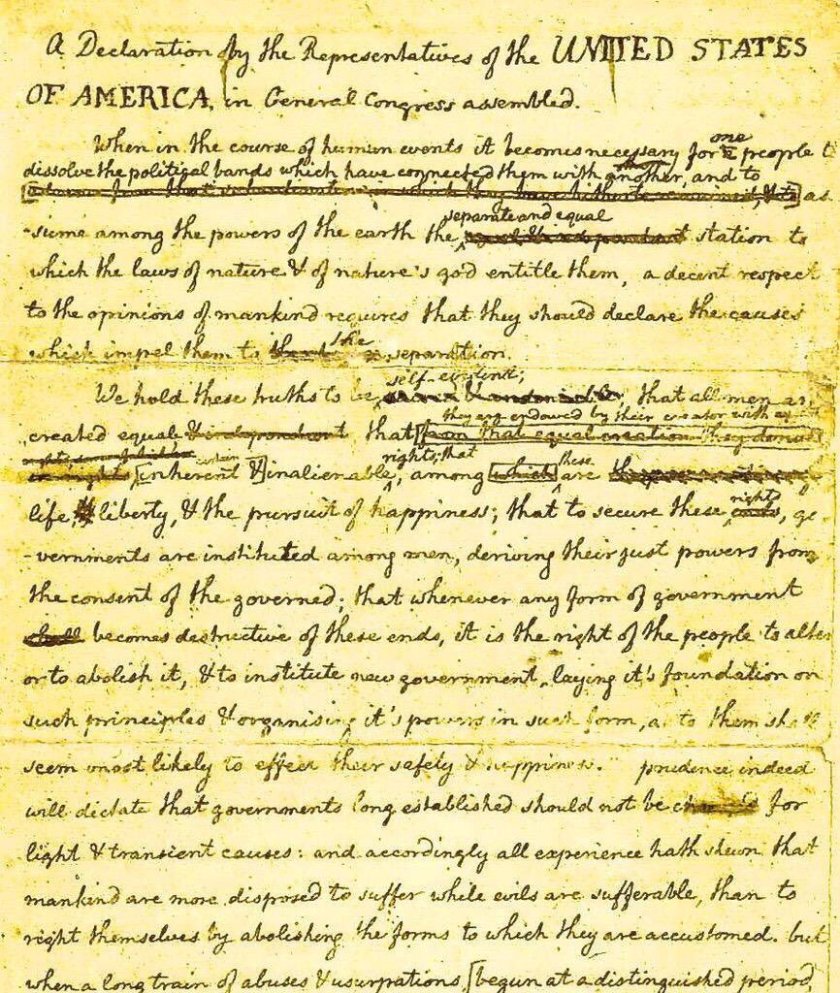 A Declaration by the Representatives of the UNITED STATES
OF AMERICA, in General Congress assembled.
When in the course of human events it becomes necessary for one people to
dissolve the political bands which have connected them with another, and to
as
separate and equal
-sume among the powers of the earth the station to
which the laws of nature & of nature's god entitle them, a decent respect
to the opinions of mankind requires that they should declare the causes
which impel them to the separation.
self-evident;
We hold these truths to be, that all men are
they are endowed by their creator with
created equal & independant that [from that equal creation they derive
certain rights; that these
in rights [inherent &] inalienable, among [which] are
life, liberty, & the pursuit of happiness; that to secure these rights, go
-vernments are instituted among men, deriving their just powers from
the consent of the governed; that whenever any form of government
shall becomes destructive of these ends, it is the right of the people to alter
or to abolish it, & to institute new government, laying it's foundation on
such principles & organising it's powers in such form, as to them shall
seem most likely to effect their safety & happiness. prudence indeed
will dictate that governments long established should not be for
light & transient causes: and accordingly all experience hath shewn that
mankind are more disposed to suffer while evils are sufferable, than to
right themselves by abolishing the forms to which they are accustomed. but
when a long train of abuses & usurpations, [begun at a distinguished period,